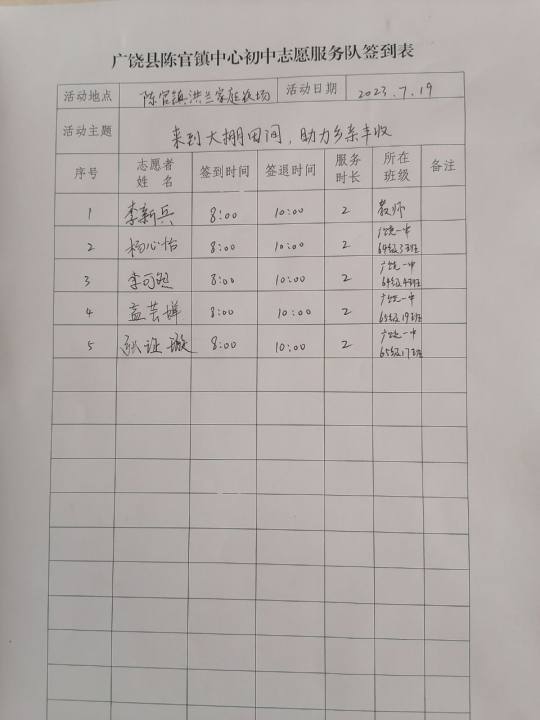 广饶县陈官镇中心初中志愿服务队签到表
活动地点 陈官镇洪兰家庭农场 活动日期 2023.7.19
活动主题 来到大棚田间，助力乡亲丰收
序号 志愿者姓名 签到时间 签退时间 服务时长 所在班级 备注
1 李新兵 8:00 10:00 2 教师
2 杨心怡 8:00 10:00 2 广饶一中 64级3班
3 李可 8:00 10:00 2 广饶一中 64级4班
4 孟芸婵 8:00 10:00 2 广饶一中 65级19班
5 8:00 10:00 2 广饶一中 65级17班